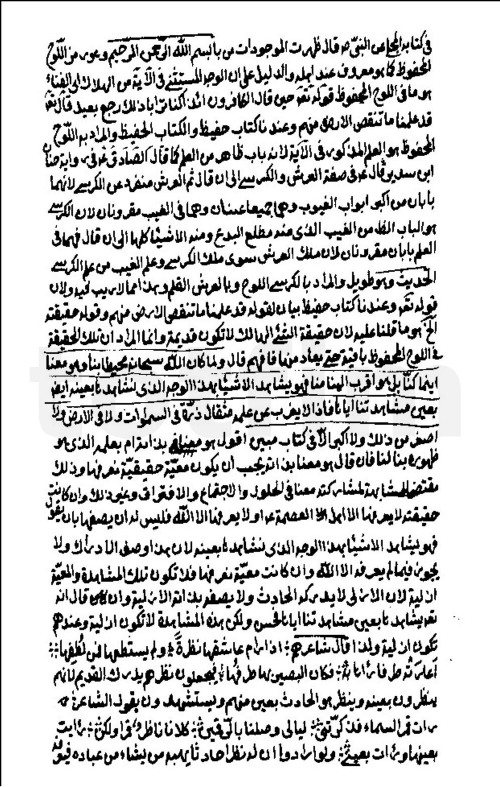 في كتابه المجلي عن النبي ص قال ظهرت الموجودات من باء بسم الله الرحمن الرحيم وعن اللوح
المحفوظ كما هو معروف عند اهله والدليل على ان الوجه المستثنى في الآية من الهلاك الى الفناء
هو ما في اللوح المحفوظ قوله تعالى حين قال الكافرون ائذا كنا ترابا ذلك رجع بعيد قال تعالى
قد علمنا ما تنقص الارض منهم وعندنا كتاب حفيظ والكتاب الحفيظ والمراد به اللوح
المحفوظ هو العلم المذكور في الآية لانه باب ظاهر من العلم كما قال الصادق ع في رواية حنان
ابن سدير قال ع في صفة العرش والكرسي الى ان قال ثم العرش منفرد عن الكرسي لانهما
بابان من اكبر ابواب الغيوب وهما جميعا غيبان وهما في الغيب مقرونان لان الكرسي
هو الباب الظاهر من الغيب الذي منه مطلع البدع ومنه الاشياء كلها الى ان قال فهما في
العلم بابان مقرونان لان ملك العرش سوى ملك الكرسي وعلم الغيب من علم الكرسي
الحديث وهو طويل والمراد بالكرسي اللوح وبالعرش القلم وهذا مما لا ريب فيه ولان
قوله تعالى وعندنا كتاب حفيظ بيان لقوله قد علمنا ما تنقص الارض منهم وقوله حقيقته
الخ هو ما قلنا عليه لان حقيقة الشيء الهالك لا تكون قديمة وانما المراد ان تلك الحقيقة
في اللوح المحفوظ باقية حتى يعاد منها فافهم قال ولما كان الله سبحانه محيطا بنا وهو معنا
اينما كنا بل هو اقرب الينا منا فهو يشاهد الاشياء بهذا الوجه الذي نشاهد نا بعينه ايضا
بعين مشاهدتنا ايانا فاذا لا يعزب عن علمه مثقال ذرة في السموات ولا في الارض ولا
اصغر من ذلك ولا اكبر الا في كتاب مبين اقول هو معنا بذاته ام بعلمه الذي هو
ظهوره بنا لنا فان قال هو معنا بذاته يجب ان يكون معية حقيقية نعرفها وذلك
مقتض للمشابهة لمشاركته معنا في الحلول والاجتماع والافتراق وغير ذلك وان كانت
حقيقته لا يعرفها الا اهل العصمة ع او لا يعرفها الا الله فليس له ان يصفها بان يقول
فهو يشاهد الاشياء بهذا الوجه الذي نشاهد نا بعينه لان هذا وصف الادراك ولا
يجوز فيما لم يعرفه الا الله وان كانت معية نعرفها فلا تكون تلك المشاهدة والمعية
ازلية لان الازلي لا يدركه الحادث ولا يصفه بذاته الازلية وان قال انه
تعالى يشاهدنا بعين مشاهدتنا ايانا بالحس ولكن هذه المشاهدة لا تكون ازلية وعندهم
تكون ازلية ولهذا قال شاعرهم اذا رام عاشقها نظرة ولم يستطعها فمن لطفها
اعارته طرفا رآها به فكان البصير بها طرفها فيجعلون نظرهم يدرك القديم لانهم
ينظرون بعينه وينظر هو الحادث بعين منهم ويستشهدون بقول الشاعر
رأت قمر السماء فذكرتني ليالي وصلنا بالرقمتين كلانا ناظر قمرا ولكن رأيت
بعينها ورأت بعيني ولو ارادوا ان له نظر حادثا يهبه من يشاء من عباده فيق